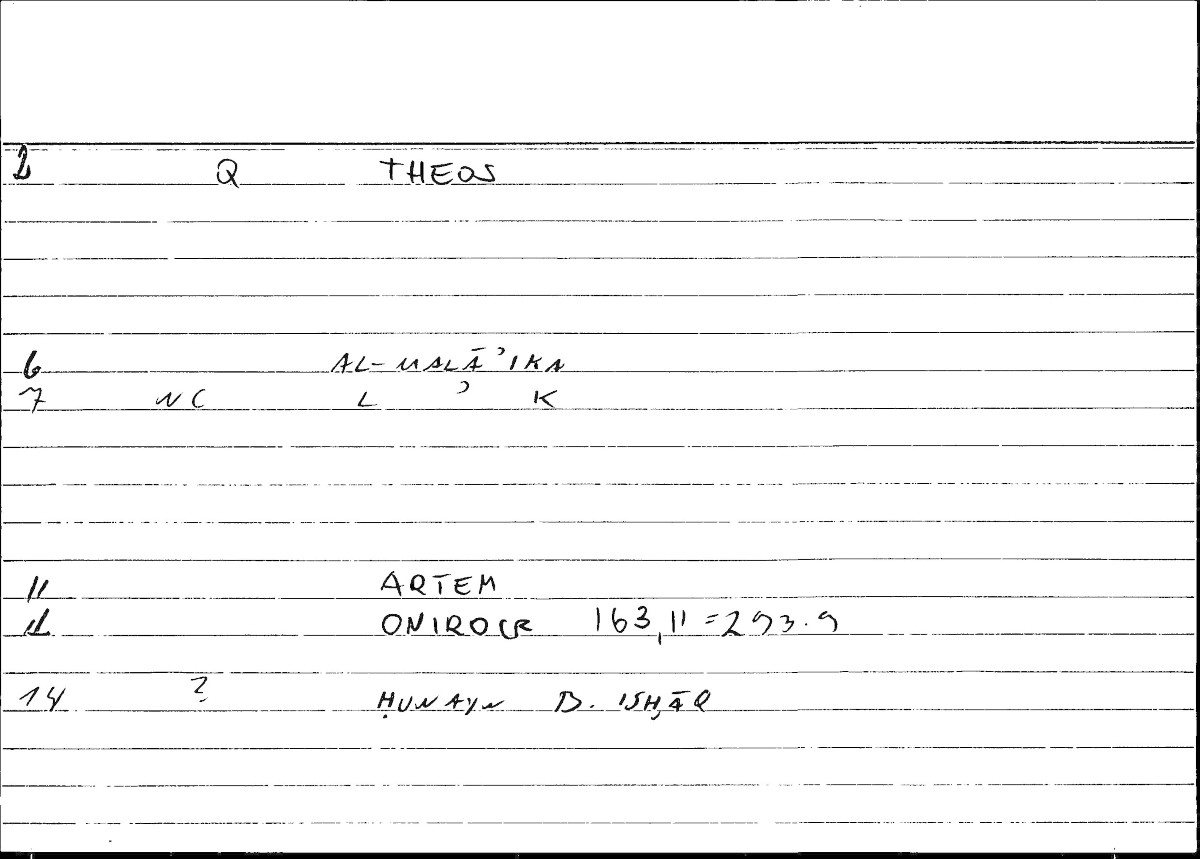 2 Q THEOS
6 AL-MALĀʾIKA
7 NC L ʾ K
11 ARTEM
12 ONIROCR 163,11=293.9
14 ? ḤUNAYN B. ISḤĀQ